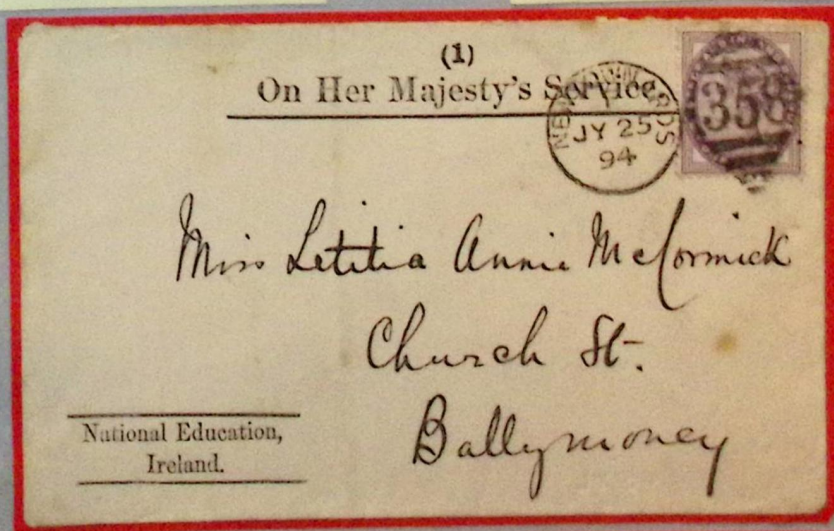 (1)
On Her Majesty's Service.
NEWTOWNARDS
JY 25
94
358
Miss Letitia Annie McCormick
Church St.
Ballymoney
National Education,
Ireland.